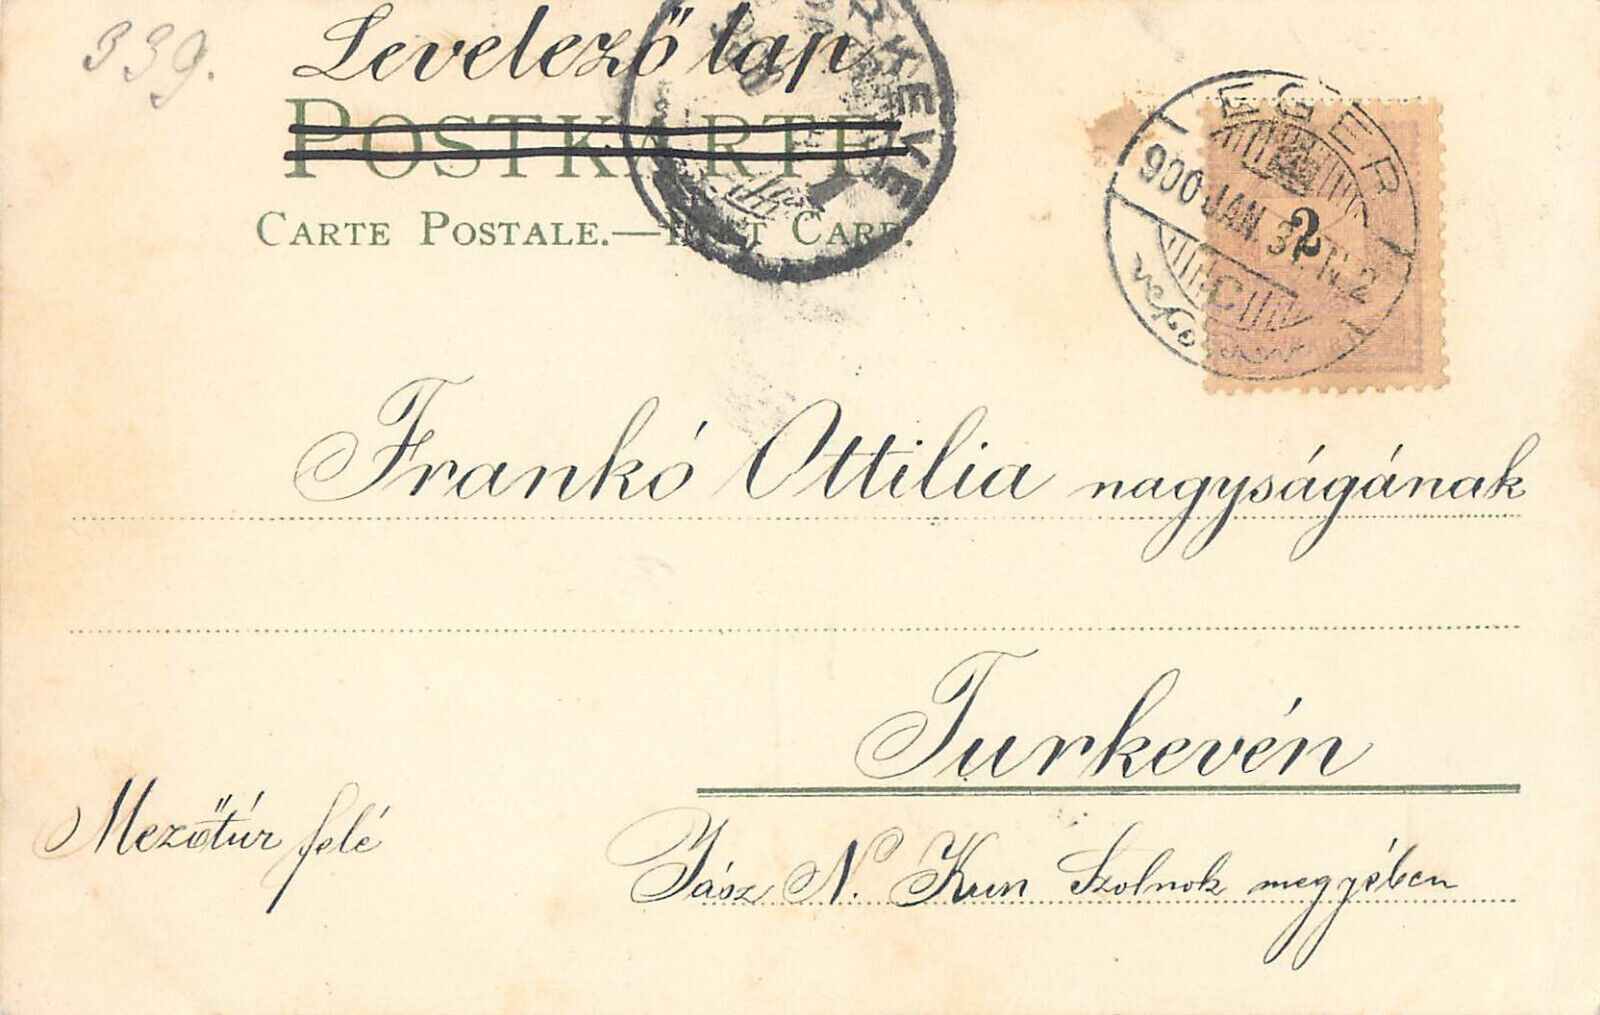 339.
Levelező lap
POSTKARTE
CARTE POSTALE.—POST CARD.
EGER
900 JAN. 31. N. 2
C
2
Frankó Ottilia nagyságának
Turkevén
Mezőtúr felé
Jász N. Kun Szolnok megyében